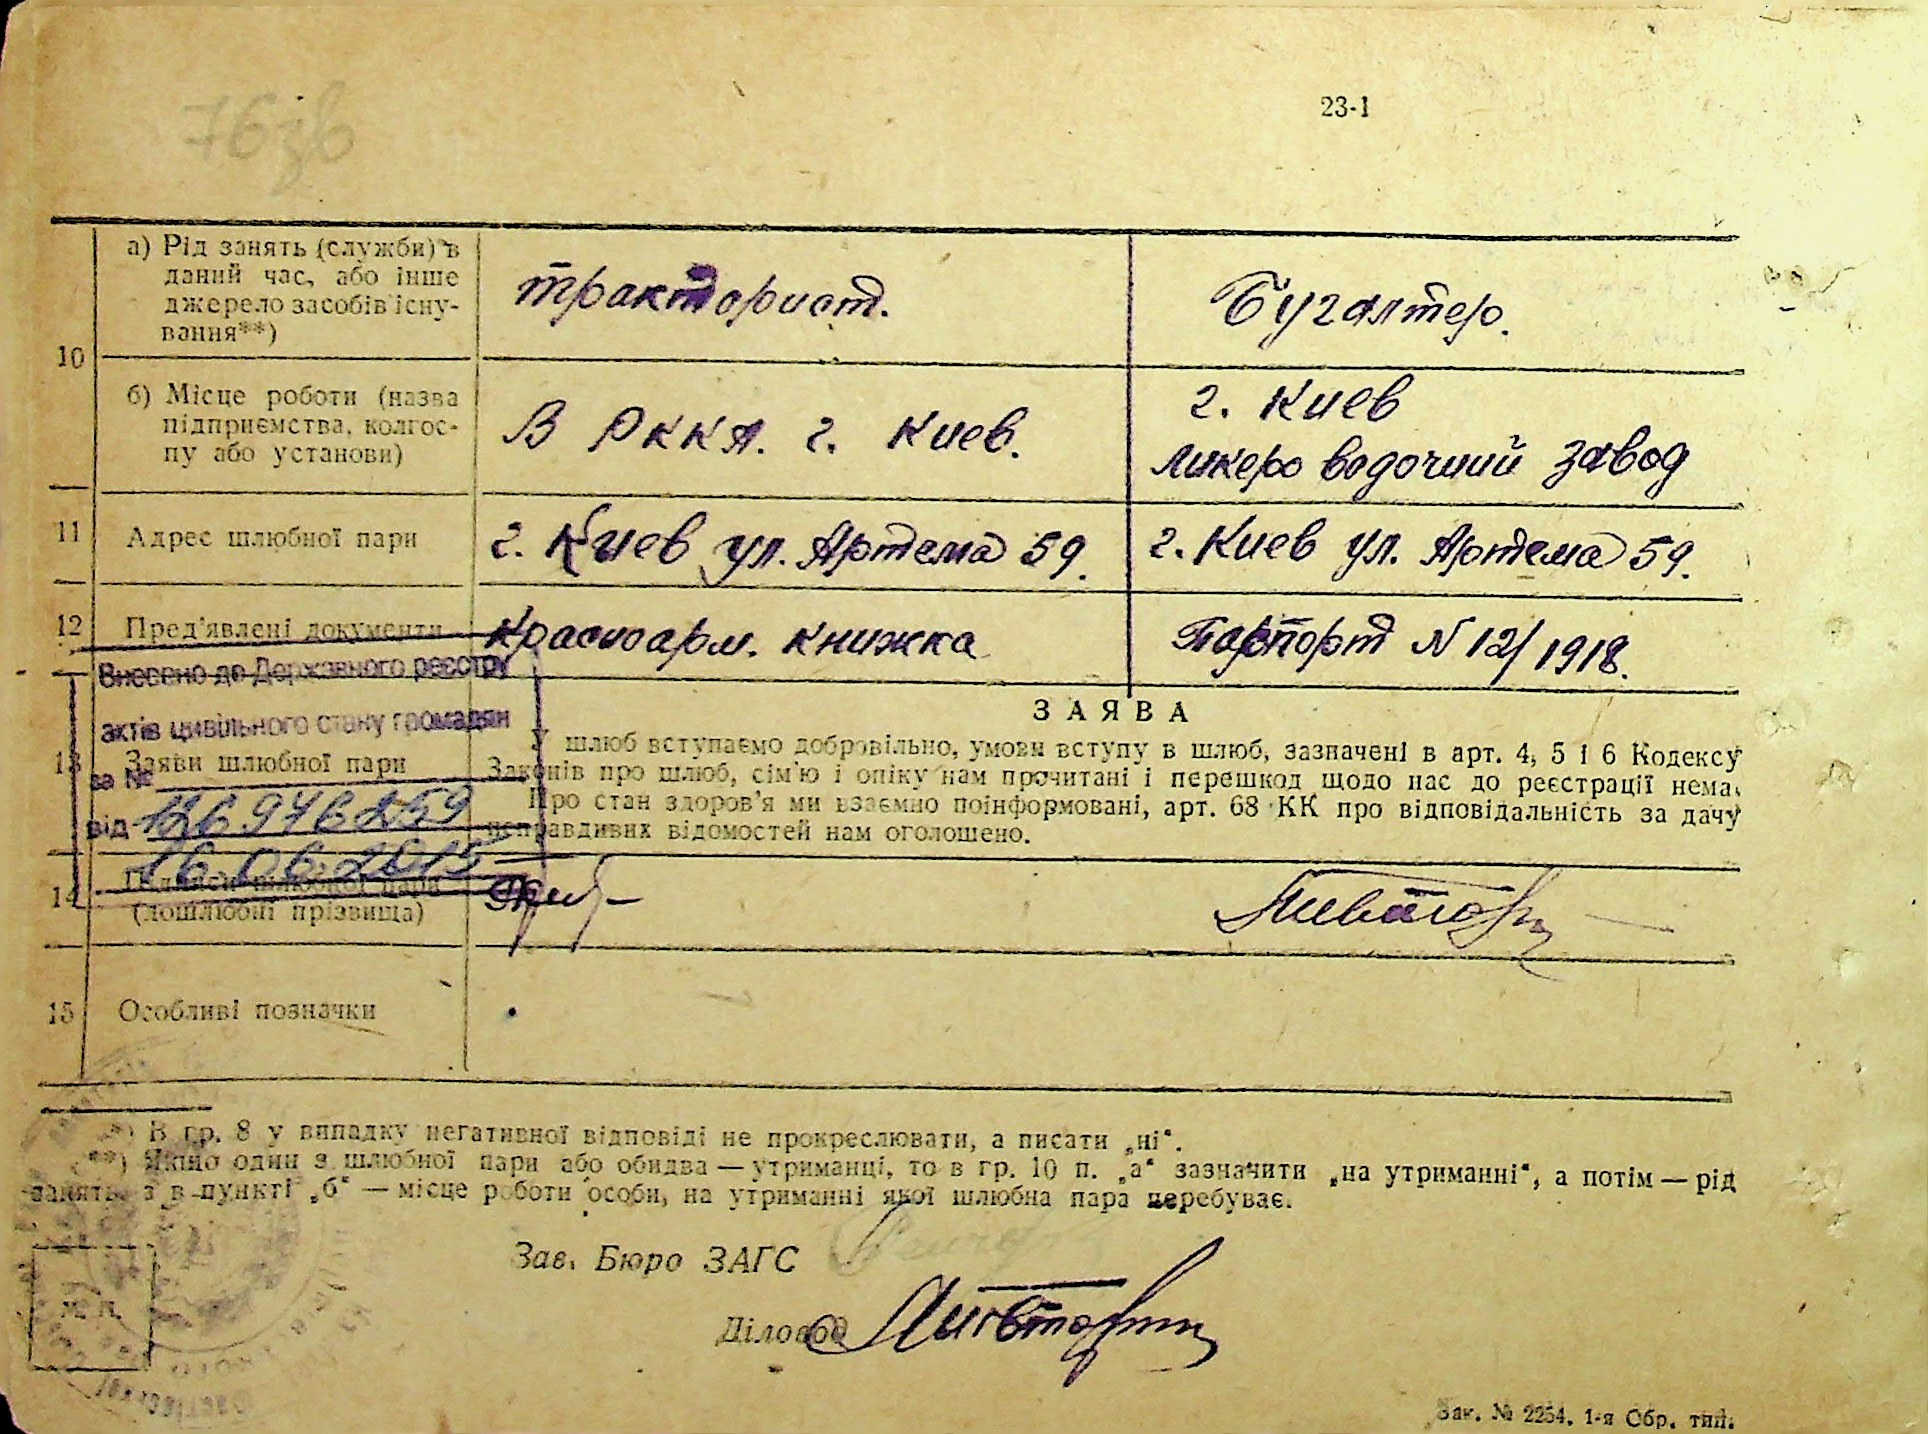 76зв
23-1
10
а) Рід занять (служби) в
даний час, або інше
джерело засобів існу-
вання**)
трактор​ист.
Бугалтер.
б) Місце роботи (назва
підприємства, колгос-
пу або установи)
В РККА. г. Киев.
г. Киев
ликеро водочний завод
11
Адрес шлюбної пари
г. Киев ул. Артема 59.
г. Киев ул. Артема 59.
12
Пред'явлені документи
Красноарм. книжка
Паспорт N 12/1918.
Внесено до Державного реєстру
актів цивільного стану громадян
за №
126976259
від
16.06.2015
13
Заяви шлюбної пари
ЗАЯВА
У шлюб вступаємо добровільно, умови вступу в шлюб, зазначені в арт. 4, 5 і 6 Кодексу
Законів про шлюб, сім'ю і опіку нам прочитані і перешкод щодо нас до реєстрації нема.
Про стан здоров'я ми взаємно поінформовані, арт. 68 КК про відповідальність за дачу
неправдивих відомостей нам оголошено.
14
Підписи шлюбної пари
(дошлюбні прізвища)
15
Особливі позначки
*) В гр. 8 у випадку негативної відповіді не прокреслювати, а писати „ні“.
**) Якщо один з шлюбної пари або обидва — утриманці, то в гр. 10 п. „а“ зазначити „на утриманні“, а потім — рід
занять, а в пункті „б“ — місце роботи особи, на утриманні якої шлюбна пара перебуває.
Зав. Бюро ЗАГС
Діловод
М. П.
Зак. № 2254. 1-я Обр. тип.